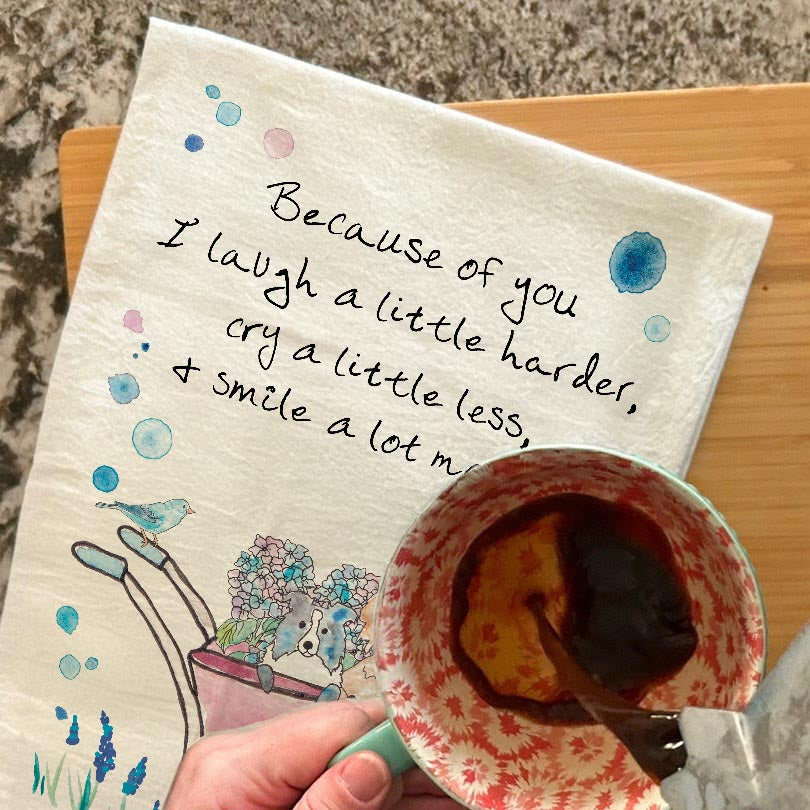 Because of you
I laugh a little harder,
cry a little less,
& smile a lot